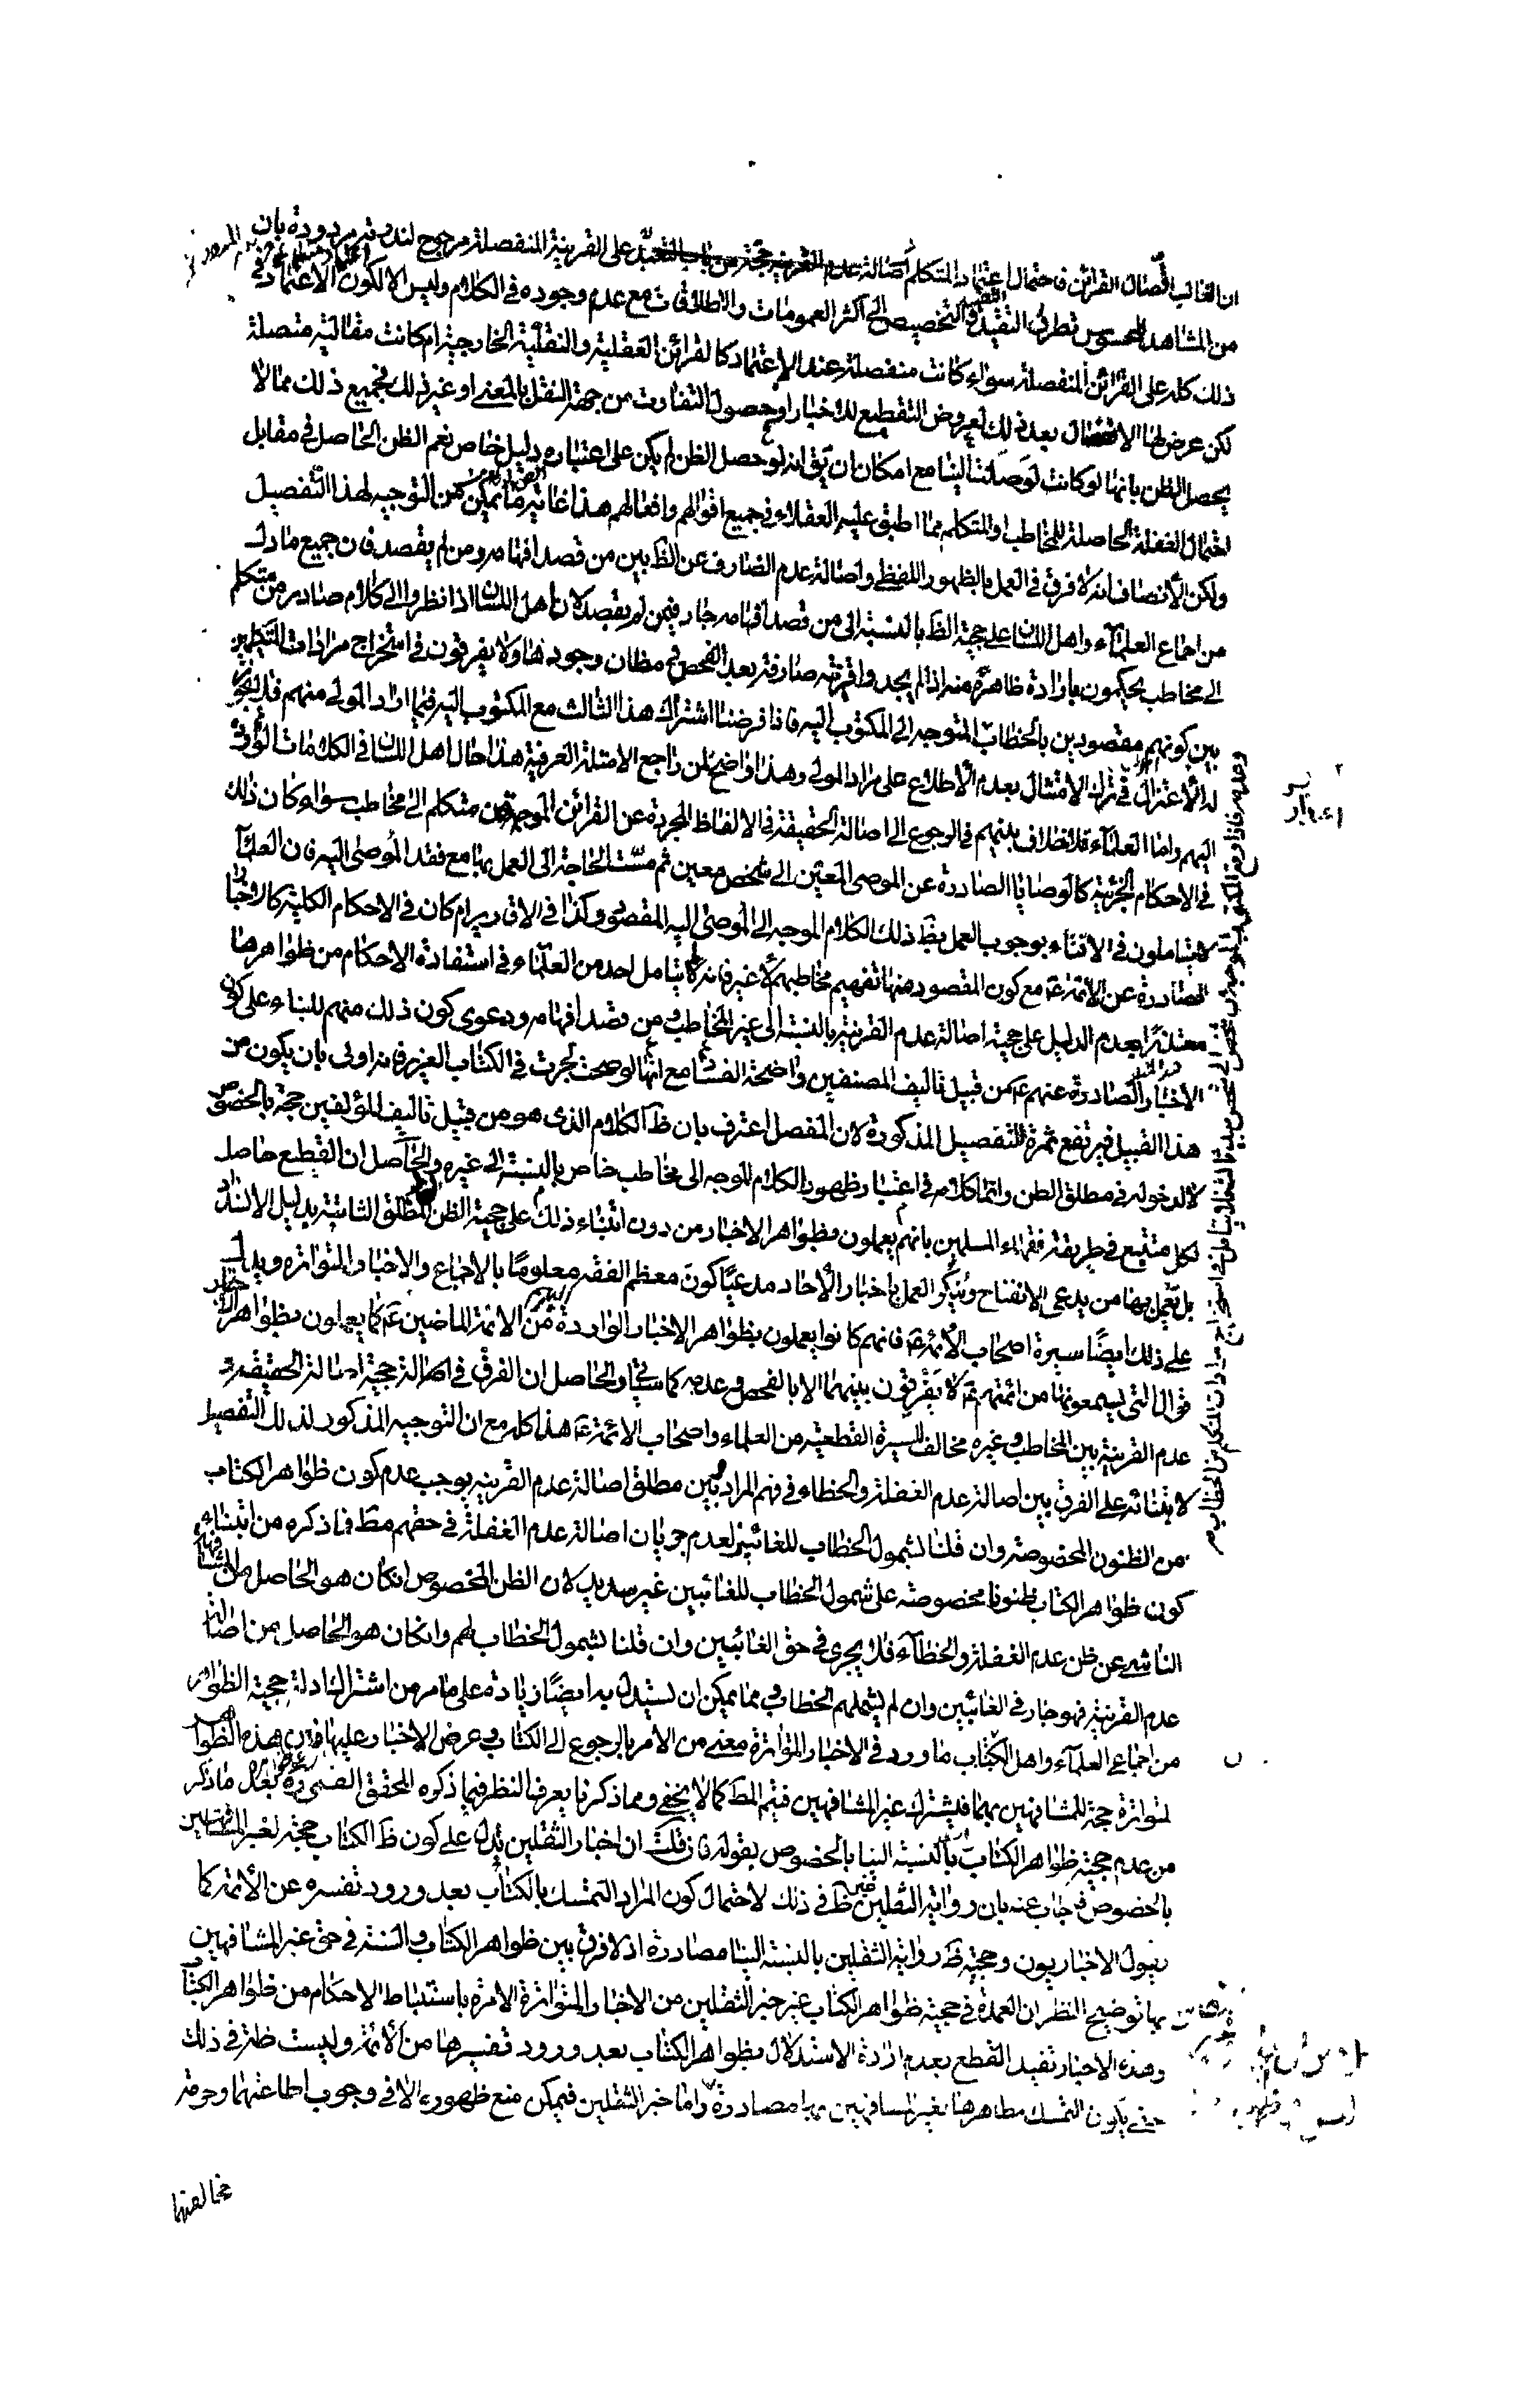 ان الغالب اتّصال القرائن فاحتمال اعتماد المتكلم على القرينة المنفصلة مرجوح لندرته مردودة بان
من المشاهد المحسوس تطرق التقييد و التخصيص الى اكثر العمومات و الاطلاقات مع عدم وجوده فى الكلام وليس الا لكون الاعتماد فى
ذلك كله على القرائن المنفصلة سواء كانت منفصلة عند الاعتماد كالقرائن العقلية و النقلية الخارجية ام كانت مقالية متصلة
لكن عرض لها الانفصال بعد ذلك لعروض التقطيع للاخبار او حصول التفاوت من جهة النقل بالمعنى او غير ذلك فجميع ذلك مما لا
يحصل الظن بانها لو كانت لوصلت الينا مع امكان ان يق انه لو حصل الظن لم يكن على اعتباره دليل خاص نعم الظن الحاصل فى مقابل
احتمال الغفلة الحاصلة للمخاطب او المتكلم مما اطبق عليه العقلاء فى جميع اقوالهم و افعالهم هذا غاية ما يمكن من التوجيه لهذا التفصيل
ولكن الانصاف انه لا فرق فى العمل بالظهور اللفظى و اصالة عدم الصارف عن الظ بين من قصد افهامه و من لم يقصد فان جميع ما دل
من اجماع العلماء و اهل اللسان على حجية الظ بالنسبة الى من قصد افهامه جار فيمن لم يقصد لان اهل اللسان اذا نظروا الى كلام صادر من متكلم
الى مخاطب يحكمون بارادة ظاهره منه اذا لم يجدوا قرينة صارفة بعد الفحص فى مظان وجودها و لا يفرقون فى استخراج مرادات المتكلمين
بين كونهم مقصودين بالخطاب المتوجه الى المكتوب اليه فاذا فرضنا اشتراك هذا الثالث مع المكتوب اليه فيما اراد المولى منهم فلا يجوز
له الاعتذار فى ترك الامتثال بعدم الاطلاع على مراد المولى و هذا واضح لمن راجع الامثلة العرفية هذا حال اهل اللسان فى الكلمات الواردة
اليهم و اما العلماء فلا خلاف بينهم فى الرجوع الى اصالة الحقيقة فى الالفاظ المجردة عن القرائن الموجهة من متكلم الى مخاطب سواء كان ذلك
فى الاحكام الجزئية كالوصايا الصادرة عن الموصى المعين الى شخص معين ثم مست الحاجة الى العمل بها مع فقد الموصى اليه فان العلماء
لا يتاملون فى الافتاء بوجوب العمل بظ ذلك الكلام الموجه الى الموصى اليه المقصود و كذا فى الاقارير ام كان فى الاحكام الكلية كالاخبار
الصادرة عن الائمة ع مع كون المقصود منها تفهيم مخاطبهم لا غير فانه لا يتامل احد من العلماء فى استفادة الاحكام من ظواهرها
معتذرا بعدم الدليل على حجية اصالة عدم القرينة بالنسبة الى غير المخاطب و من قصد افهامه و دعوى كون ذلك منهم للبناء على كون
الاخبار الصادرة عنهم ع من قبيل تاليف المصنفين واضحة الفساد مع انها لو صحت لجرت فى الكتاب العزيز فانه اولى بان يكون من
هذا القبيل فيرتفع ثمرة التفصيل المذكورة لان المفصل اعترف بان ظ الكلام الذى هو من قبيل تاليف المؤلفين حجة بالخصوص
لا لدخوله فى مطلق الظن و انما كلامه فى اعتبار ظهور الكلام الموجه الى مخاطب خاص بالنسبة الى غيره و الحاصل ان القطع حاصل
لكل متتبع فى طريقة فقهاء المسلمين بانهم يعملون بظواهر الاخبار من دون ابتناء ذلك على حجية الظن المطلق الثابتة بدليل الانسداد
بل يعمل بها من يدعى الانفتاح و ينكر العمل باخبار الاحاد مدعيا كون معظم الفقه معلوما بالاجماع و الاخبار المتواترة و يدل
على ذلك ايضا سيرة اصحاب الائمة ع فانهم كانوا يعملون بظواهر الاخبار الواردة من الائمة الماضين ع كما يعملون بظواهر
الاقوال التى يسمعونها من ائمتهم ع لا يفرقون بينهما الا بالفحص و عدمه كما سياتى و الحاصل ان الفرق فى اصالة حجية اصالة الحقيقة و
عدم القرينة بين المخاطب و غيره مخالف للسيرة القطعية من العلماء و اصحاب الائمة ع هذا كله مع ان التوجيه المذكور لذلك التفصيل
لابتنائه على الفرق بين اصالة عدم الغفلة و الخطاء فى فهم المراد و بين مطلق اصالة عدم القرينة يوجب عدم كون ظواهر الكتاب
من الظنون المخصوصة و ان قلنا بشمول الخطاب للغائبين لعدم جريان اصالة عدم الغفلة فى حقهم مط فما ذكره من ابتناء
كون ظواهر الكتاب ظنونا مخصوصة على شمول الخطاب للغائبين غير سديد لان الظن المخصوص ان كان هو الحاصل من المشافهة
الناشى عن ظن عدم الغفلة و الخطاء فلا يجرى فى حق الغائبين و ان قلنا بشمول الخطاب لهم و ان كان هو الحاصل من اصالة
عدم القرينة فهو جار فى الغائبين و ان لم يشملهم الخطاب و مما يمكن ان يستدل به ايضا زيادة على ما مر من اشتراك ادلة حجية الظواهر
من اجماعى العلماء و اهل اللسان ما ورد فى الاخبار المتواترة معنى من الامر بالرجوع الى الكتاب و عرض الاخبار عليها فان هذه الظواهر
المتواترة حجة للمشافهين بها فيشترك غير المشافهين فيتم المط كما لا يخفى و مما ذكرنا يعرف النظر فيما ذكره المحقق القمى ره بعد ما ذكر
من عدم حجية ظواهر الكتاب بالنسبة الينا بالخصوص بقوله فان قلت ان اخبار الثقلين تدل على كون ظ الكتاب حجة لغير المشافهين
بالخصوص فاجاب عنه بان رواية الثقلين ظ فى ذلك لاحتمال كون المراد التمسك بالكتاب بعد ورود تفسيره عن الائمة كما
يقول الاخباريون و حجية ظ رواية الثقلين بالنسبة الينا مصادرة اذ لا فرق بين ظواهر الكتاب و السنة فى حق غير المشافهين
بها توضيح النظر ان العمدة فى حجية ظواهر الكتاب غير خبر الثقلين من الاخبار المتواترة الامرة باستنباط الاحكام من ظواهر الكتاب
و هذه الاخبار تفيد القطع بعدم ارادة الاستدلال بظواهر الكتاب بعد ورود تفسيرها من الائمة و ليست ظاهرة فى ذلك
حتى يكون التمسك بظاهرها لغير المشافهين بها مصادرة و اما خبر الثقلين فيمكن منع ظهوره الا فى وجوب اطاعتهما و حرمة
مخالفتهما